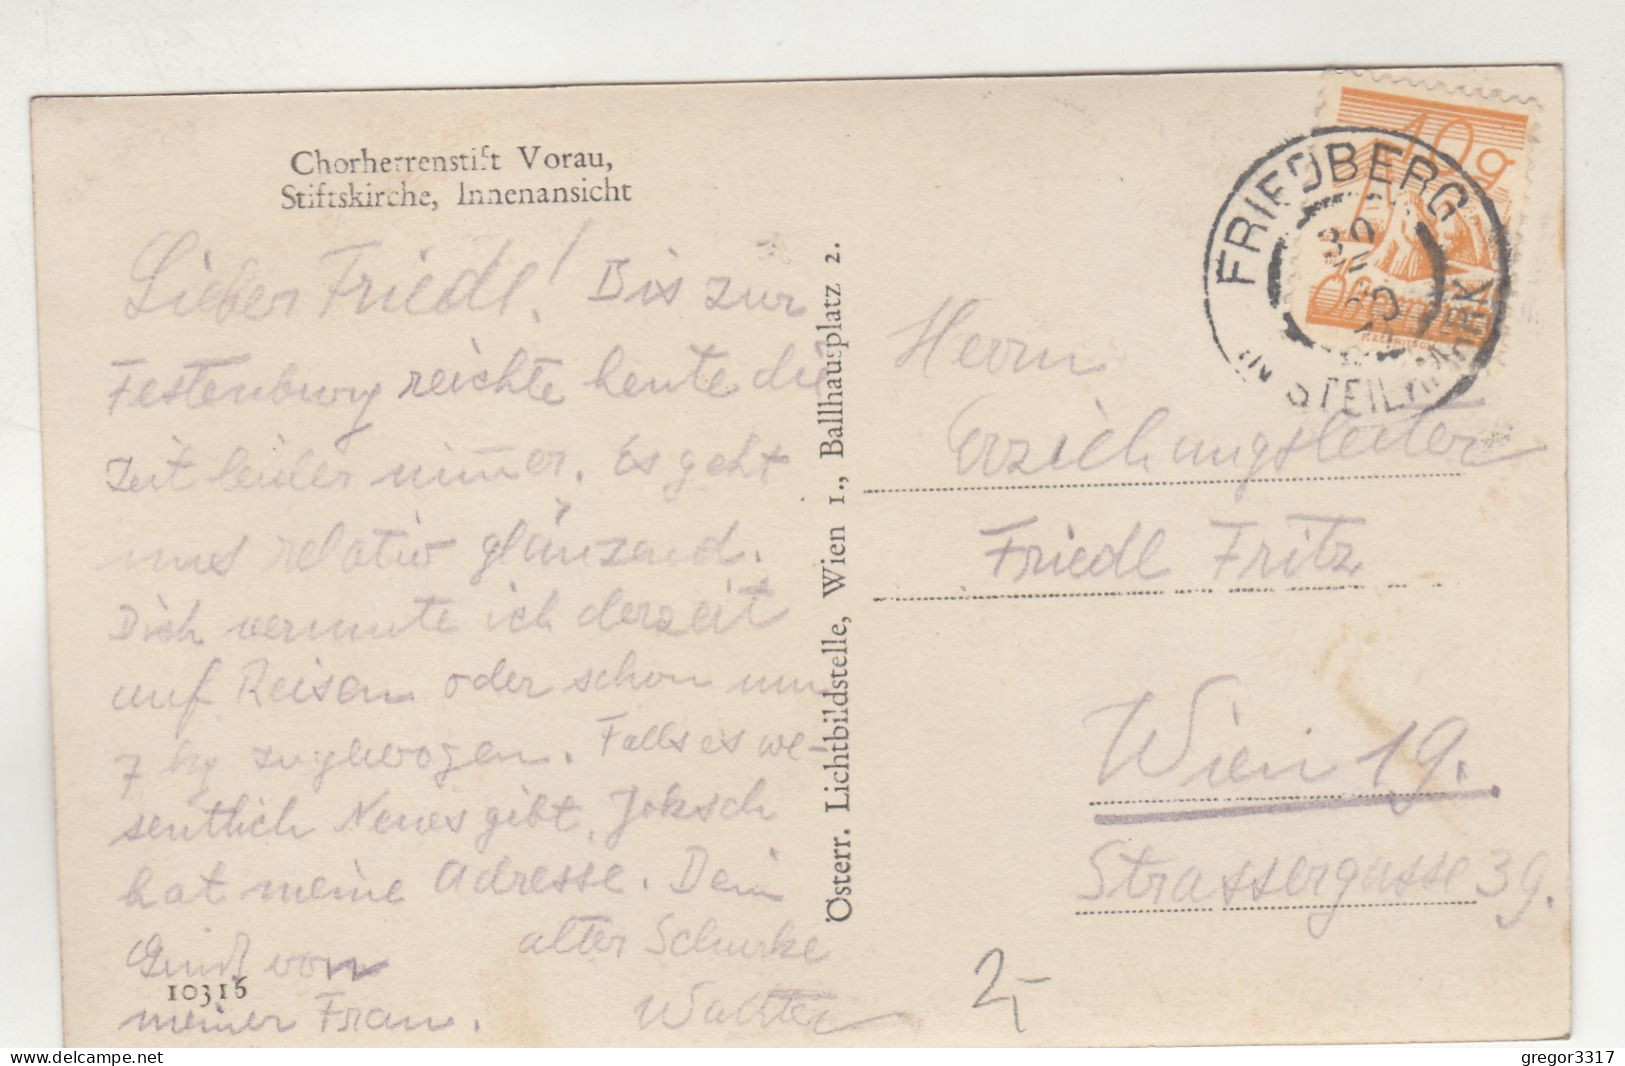 Chorherrenstift Vorau,
Stiftskirche, Innenansicht
Lieber Friedl! Bis zur
Festenburg reichte heute die
Zeit leider nimmer. Es geht
uns relativ glänzend.
Dich vermute ich derzeit
auf Reisen oder schon um
7 kg zugewogen. Falls es we-
sentlich Neues gibt, Joksch
hat meine Adresse. Dein
alter Schurke
Gruß von
meiner Frau.
10316
Österr. Lichtbildstelle, Wien 1., Ballhausplatz 2.
10g
FRIEDBERG
IN STEIERMARK
Herrn
Erziehungsleiter
Friedl Fritz
Wien 19.
Strassergasse 39.
2,-
delcampe.net
gregor3317